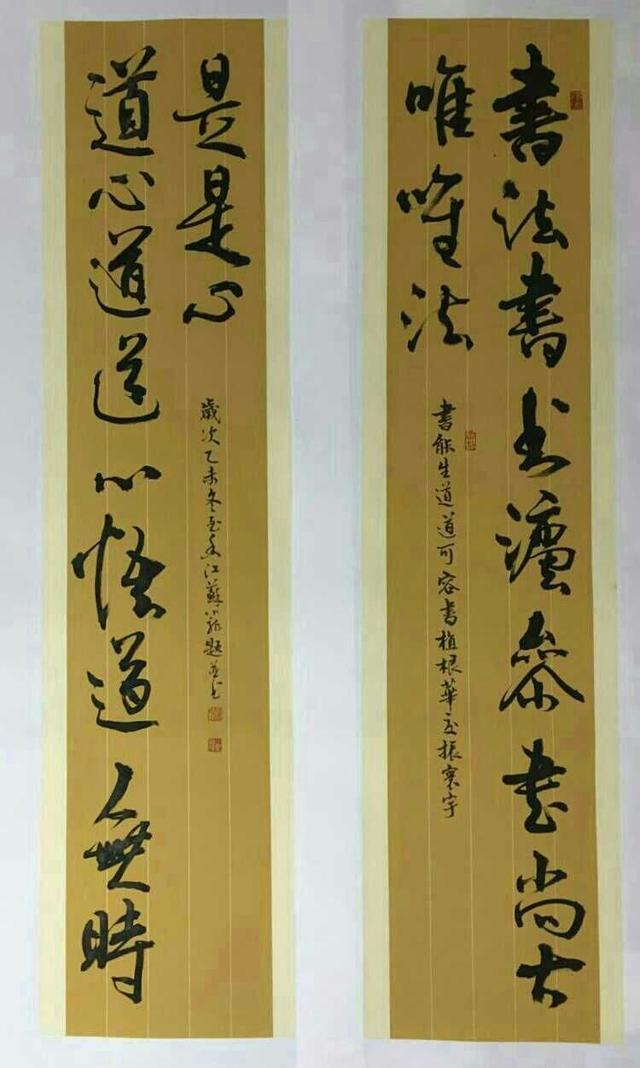 書法書书灋叅書尚古
唯唯法
書能生道道可容書植根華夏振寰宇
道心道道心悟道無時
是是心
歲次乙未冬至江蘇題並书